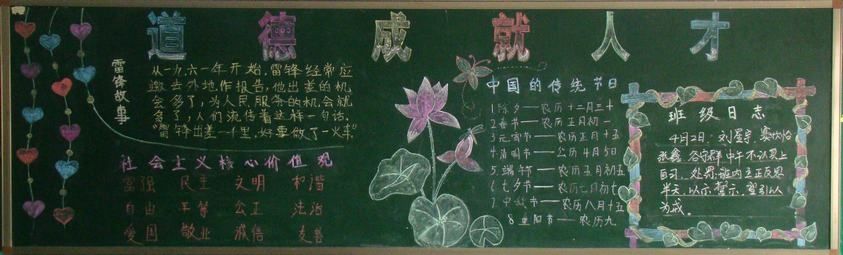 道德成就人才
雷锋故事
从一九六一年开始,雷锋经常应
邀去外地作报告,他出差的机
会多了,为人民服务的机会就
多了,人们流传着这样一句话:
“雷锋出差一千里,好事做了一火车”
社会主义核心价值观
富强 民主 文明 和谐
自由 平等 公正 法治
爱国 敬业 诚信 友善
中国的传统节日
1.除夕——农历十二月三十
2.春节——农历正月初一
3.元宵节——农历正月十五
4.清明节——公历4月5日
5.端午节——农历五月初五
6.七夕节——农历七月初七
7.中秋节——农历八月十五
8.重阳节——农历九
班级日志
4月2日:刘
中午不认真上
自习,处罚:班内立正反思
半天,以示警示,望引以
为戒。